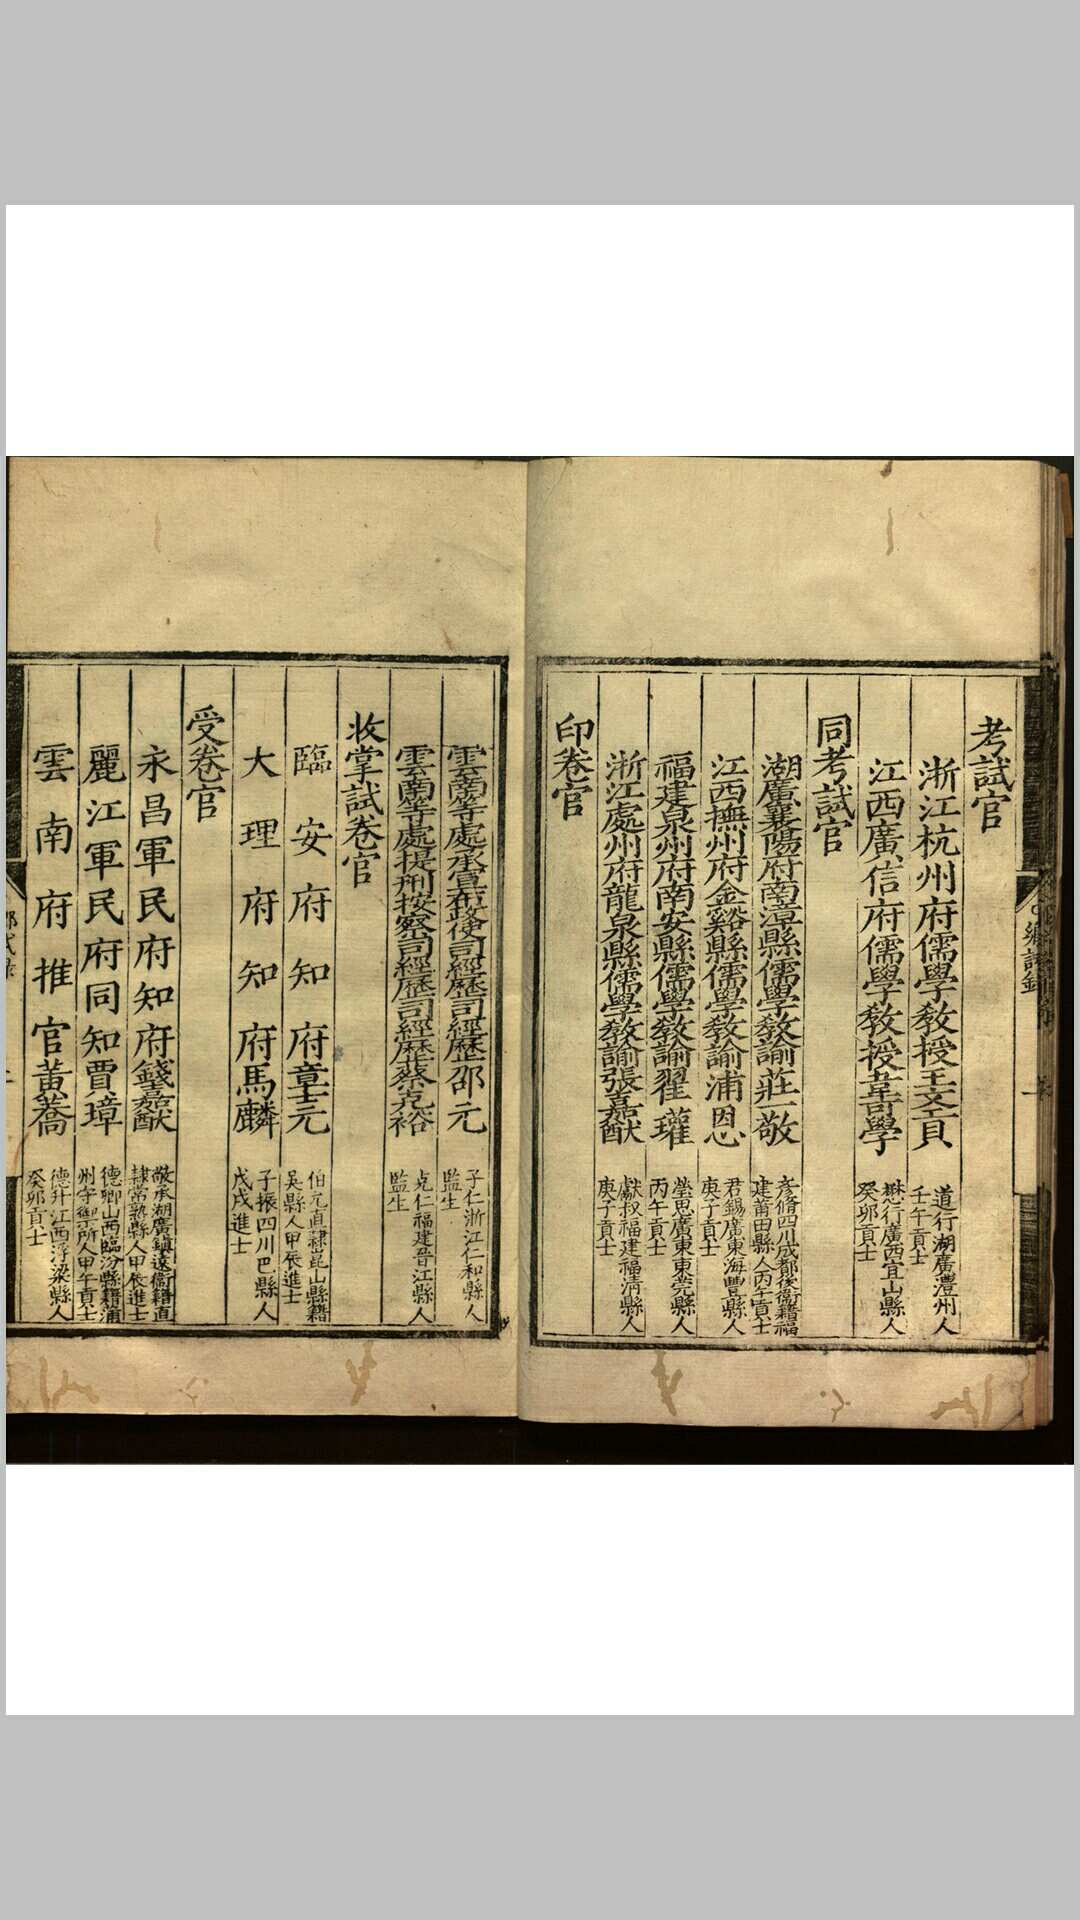 考試官
浙江杭州府儒學教授王文貢
道行湖廣澧州人
壬午貢士
江西廣信府儒學教授韋吾學
懋行廣西宜山縣人
癸卯貢士
同考試官
湖廣襄陽府南漳縣儒學教諭莊一敬
彥脩四川成都後衞籍福
建莆田縣人丙午貢士
江西撫州府金谿縣儒學教諭浦恩
君錫廣東海豐縣人
庚子貢士
福建泉州府南安縣儒學教諭翟瓘
瑩思廣東東莞縣人
丙午貢士
浙江處州府龍泉縣儒學教諭張嘉猷
獻叔福建福清縣人
庚子貢士
印卷官
雲南等處承宣布政使司經歷司經歷邵元
子仁浙江仁和縣人
監生
雲南等處提刑按察司經歷司經歷蔡克裕
克仁福建晉江縣人
監生
收掌試卷官
臨安府知府章士元
伯元直隸崑山縣籍
吳縣人甲辰進士
大理府知府馬麟
子振四川巴縣人
戊戌進士
受卷官
永昌軍民府知府錢嘉猷
敬承湖廣鎮遠衞籍直
隸常熟縣人甲辰進士
麗江軍民府同知賈璋
德卿山西臨汾縣籍蒲
州守禦所人甲午貢士
雲南府推官黃蕎
德升江西浮梁縣人
癸卯貢士